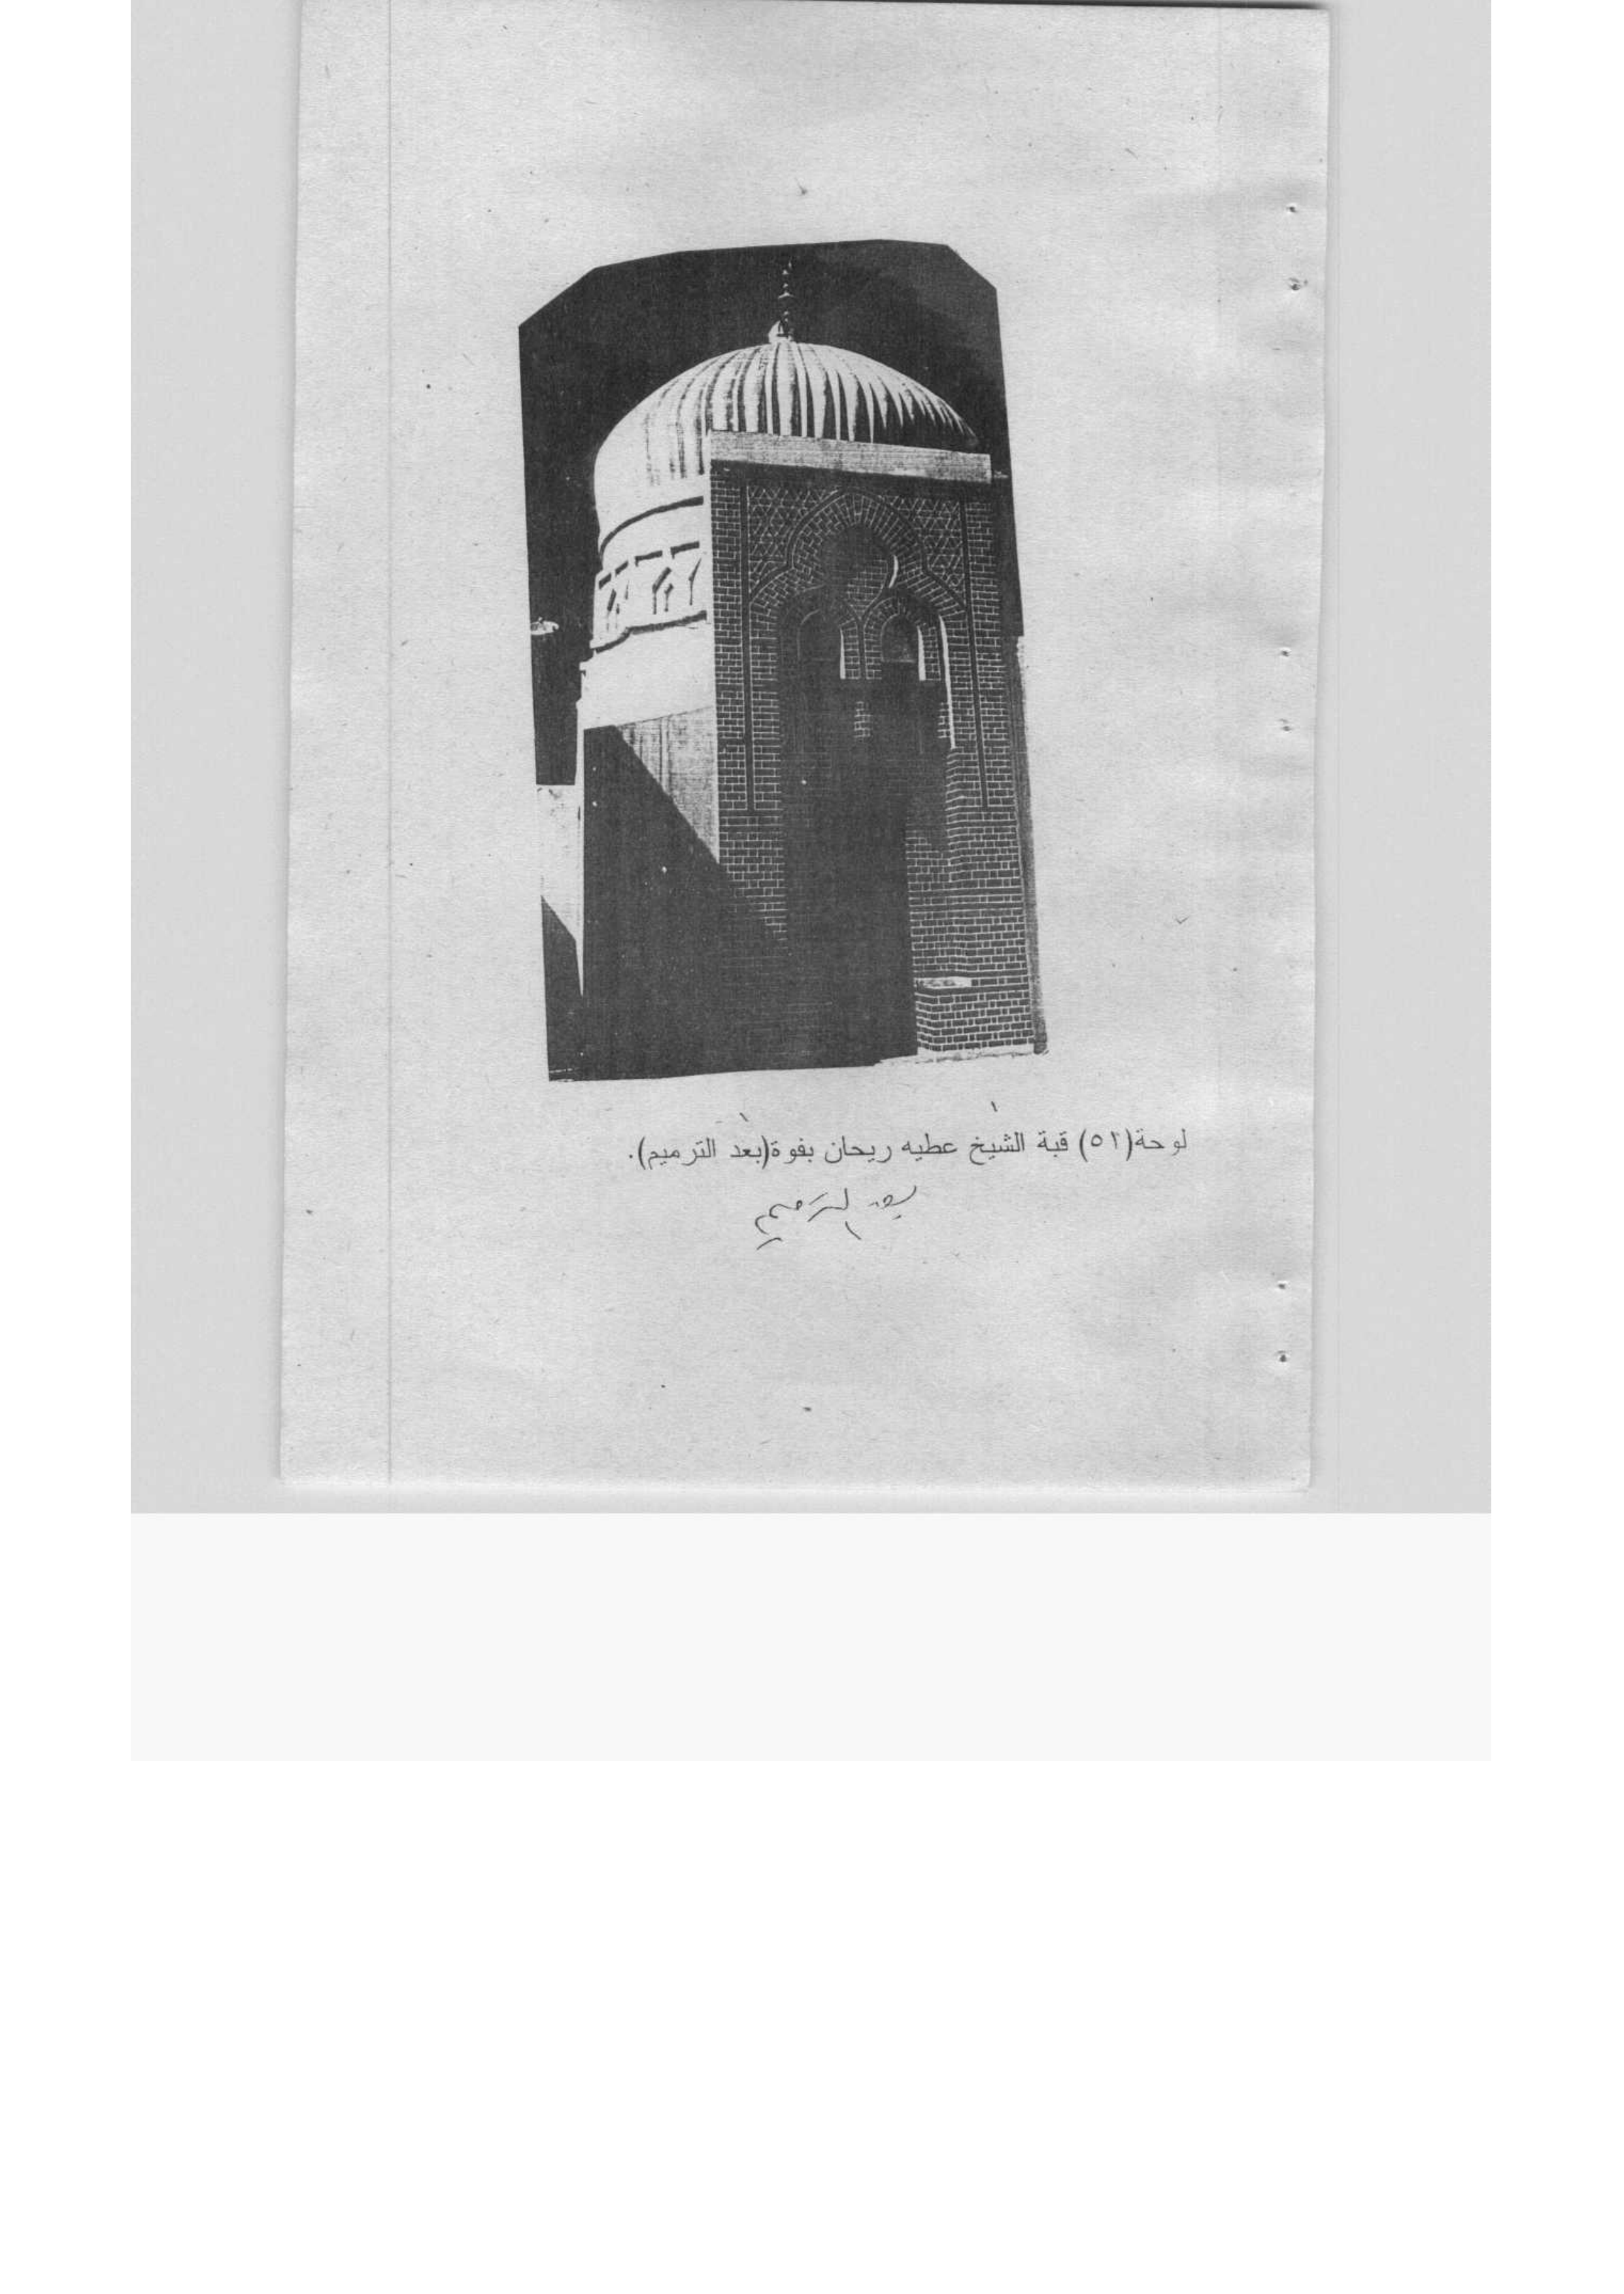 لوحة(٥٢) قبة الشيخ عطيه ريحان بفوة(بعد الترميم).
بعد الترميم